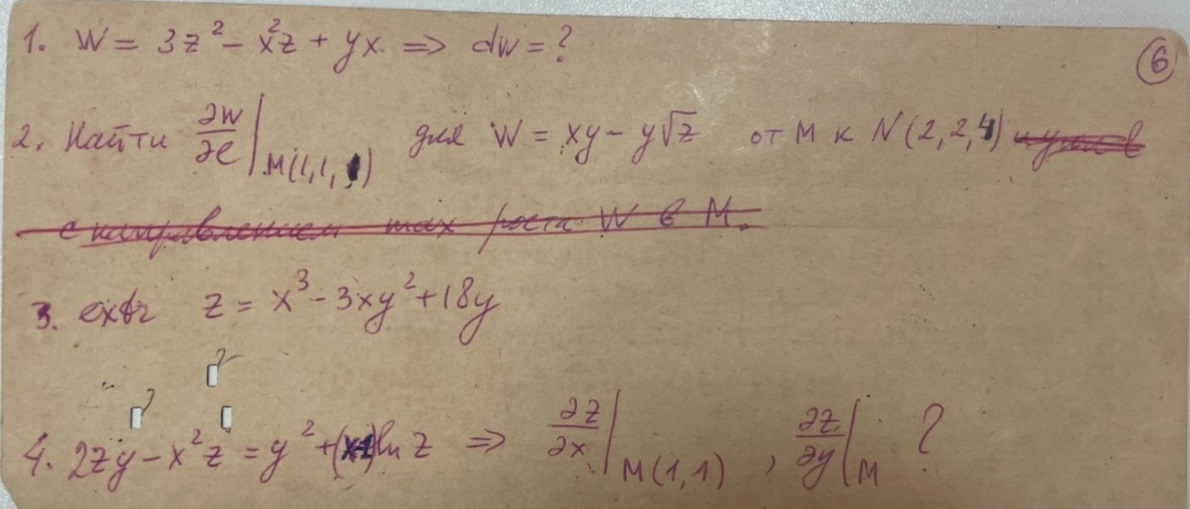 1. W = 3z² - x²z + yx ⇒ dw = ?
⑥
2. Найти ∂w/∂e |M(1,1,1) для W = xy - y√z от M к N(2,2,4)
с направлением max роста W в M.
3. extr z = x³ - 3xy² + 18y
4. 2zy - x²z = y² + (x-1)ln z ⇒ ∂z/∂x |M(1,1) , ∂z/∂y |M ?